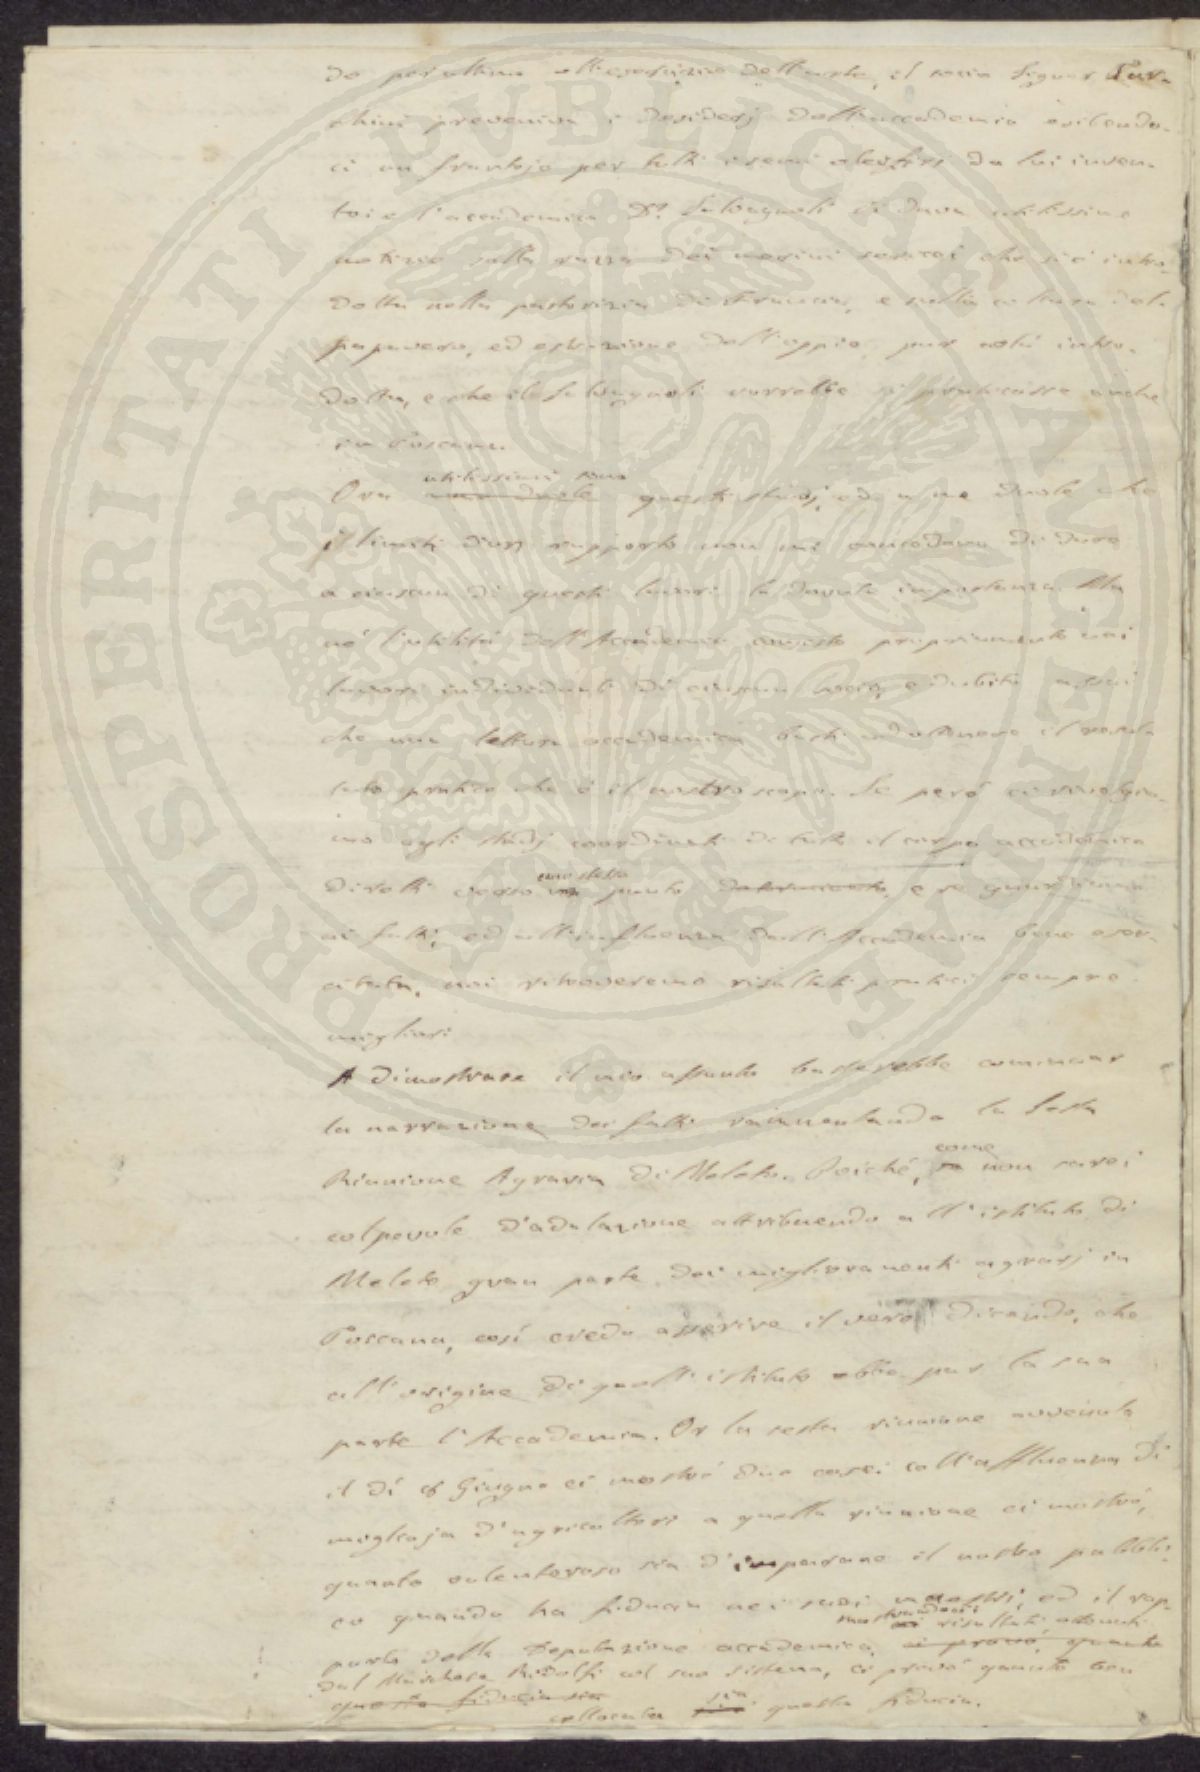 do per ultimo all'esercizio dell'arte, il socio Signor Tur-
chini preveniva i desiderj dell'accademia esibendo-
ci un frantojo per tutti i semi oleiferi da lui inven-
to; e l'accademico Dr. Salvagnoli ci dava utilissime
notizie sulla razza dei merini setacei che si è intro-
dotta nella pastorizia di Francia, e sulla cultura del
papavero, ed estrazione dell'oppio, pur colà intro-
dotta, e che il Salvagnoli vorrebbe si praticasse anche
in Toscana.
utilissimi sono
Ora questi studj, ed a me duole che
i limiti d'un rapporto non mi concedano di dare
a ciascun di questi lavori la dovuta importanza. Ma
nè l'utilità dell'Accademia consiste propriamente nei
lavori individuali di ciascun socio, e dubito assai
che una lettura accademica basti ad ottenere il resul-
tato pratico che è il nostro scopo. Se però ci rivolgia-
mo agli studj coordinati di tutto il corpo accademico
uno stesso
diretti verso un punto, e se guardiamo
ai fatti, ed all'influenza dall'Accademia bene eser-
citata, noi ritroveremo risultati pratici sempre
migliori
A dimostrare il mio assunto basterebbe cominciar
la narrazione dei fatti rammentando la Sesta
come
Riunione Agraria di Meleto. Poichè, non sarei
colpevole d'adulazione attribuendo all'istituto di
Meleto gran parte dei miglioramenti agrarj in
Toscana, così credo asserire il vero dicendo, che
all'origine di quell'istituto ebbe pur la sua
parte l'Accademia. Or la sesta riunione avvenuta
il dì 8 Giugno ci mostrò due cose: coll'affluenza di
migliaja d'agricoltori a quella riunione ci mostrò,
quanto volenteroso sia d'imparare il nostro pubbli-
co quando ha fiducia nei suoi maestri; ed il rap-
mostrandoci i risultati ottenuti
porto della Deputazione accademica, ci provò, quanto
dal Marchese Ridolfi col suo sistema, ci provò quanto ben
questa fiducia sia
collocata sia questa fiducia.